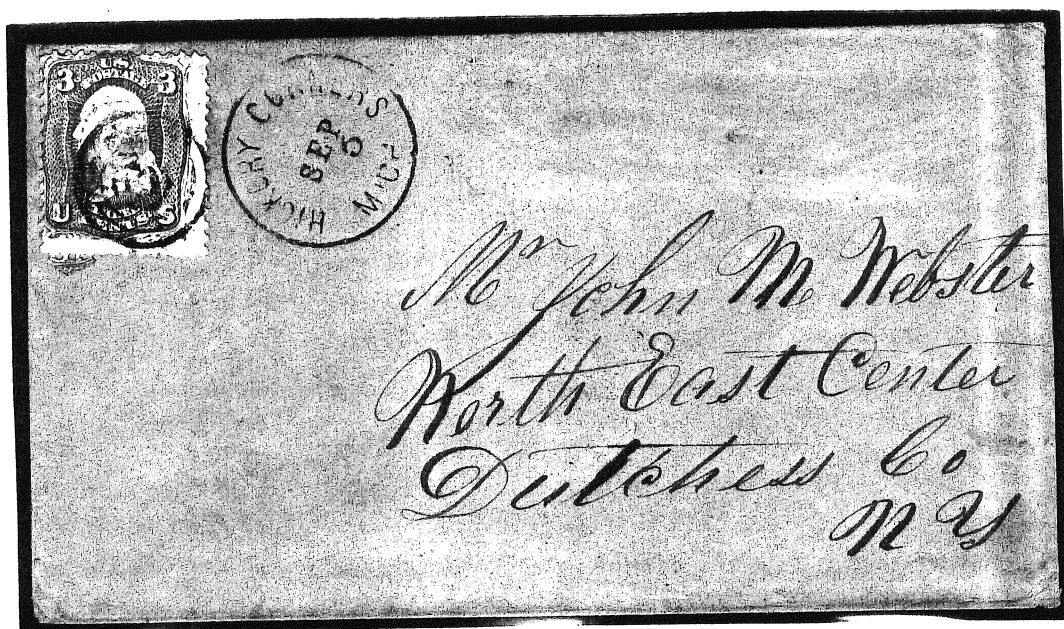 3 U.S. 3
POSTAGE
U S
HICKORY CORNERS
SEP
5
MICH
Mr John M Webster
North East Center
Dutchess Co
N Y